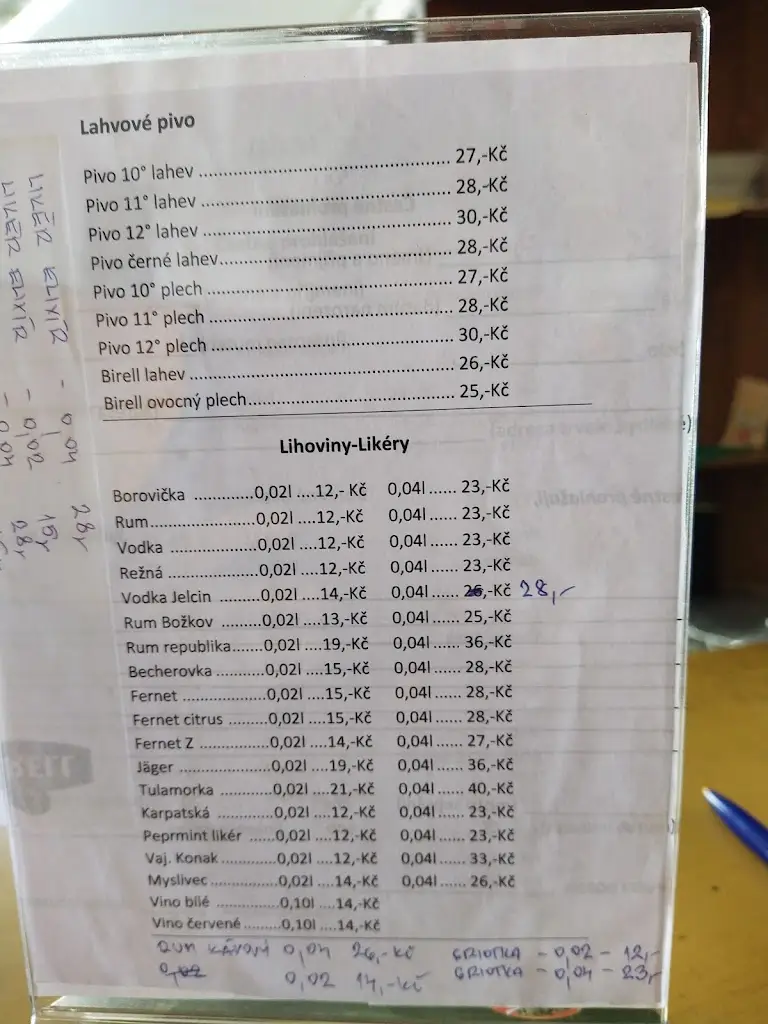 Lahvové pivo
Pivo 10° lahev ........................................... 27,-Kč
Pivo 11° lahev ........................................... 28,-Kč
Pivo 12° lahev ........................................... 30,-Kč
Pivo černé lahev........................................ 28,-Kč
Pivo 10° plech ........................................... 27,-Kč
Pivo 11° plech ........................................... 28,-Kč
Pivo 12° plech ........................................... 30,-Kč
Birell lahev ................................................ 26,-Kč
Birell ovocný plech.................................... 25,-Kč
Lihoviny-Likéry
Borovička ............0,02l ....12,- Kč 0,04l ...... 23,-Kč
Rum.....................0,02l ....12,-Kč 0,04l ...... 23,-Kč
Vodka .................0,02l ....12,-Kč 0,04l ...... 23,-Kč
Režná ..................0,02l ....12,-Kč 0,04l ...... 23,-Kč
Vodka Jelcin ........0,02l ....14,-Kč 0,04l ...... 26,-Kč 28,-
Rum Božkov ........0,02l ....13,-Kč 0,04l ...... 25,-Kč
Rum republika......0,02l ....19,-Kč 0,04l ...... 36,-Kč
Becherovka .........0,02l ....15,-Kč 0,04l ...... 28,-Kč
Fernet .................0,02l ....15,-Kč 0,04l ...... 28,-Kč
Fernet citrus ........0,02l ....15,-Kč 0,04l ...... 28,-Kč
Fernet Z ..............0,02l ....14,-Kč 0,04l ...... 27,-Kč
Jäger ...................0,02l ....19,-Kč 0,04l ...... 36,-Kč
Tulamorka ...........0,02l ....21,-Kč 0,04l ...... 40,-Kč
Karpatská ............0,02l ....12,-Kč 0,04l ...... 23,-Kč
Peprmint likér ......0,02l ....12,-Kč 0,04l ...... 23,-Kč
Vaj. Konak ...........0,02l ....12,-Kč 0,04l ...... 33,-Kč
Myslivec ..............0,02l ....14,-Kč 0,04l ...... 26,-Kč
Vino bílé .............0,10l ....14,-Kč
Vino červené .......0,10l ....14,-Kč
RUM KÁVOVÝ 0,04 26,-Kč GRIOTKA - 0,02 - 12,-
0,02 0,02 14,-Kč GRIOTKA - 0,04 - 23,-
LIKÉR ELIXÍR - 0,04 28,-
LIKÉR ELIXÍR - 0,02